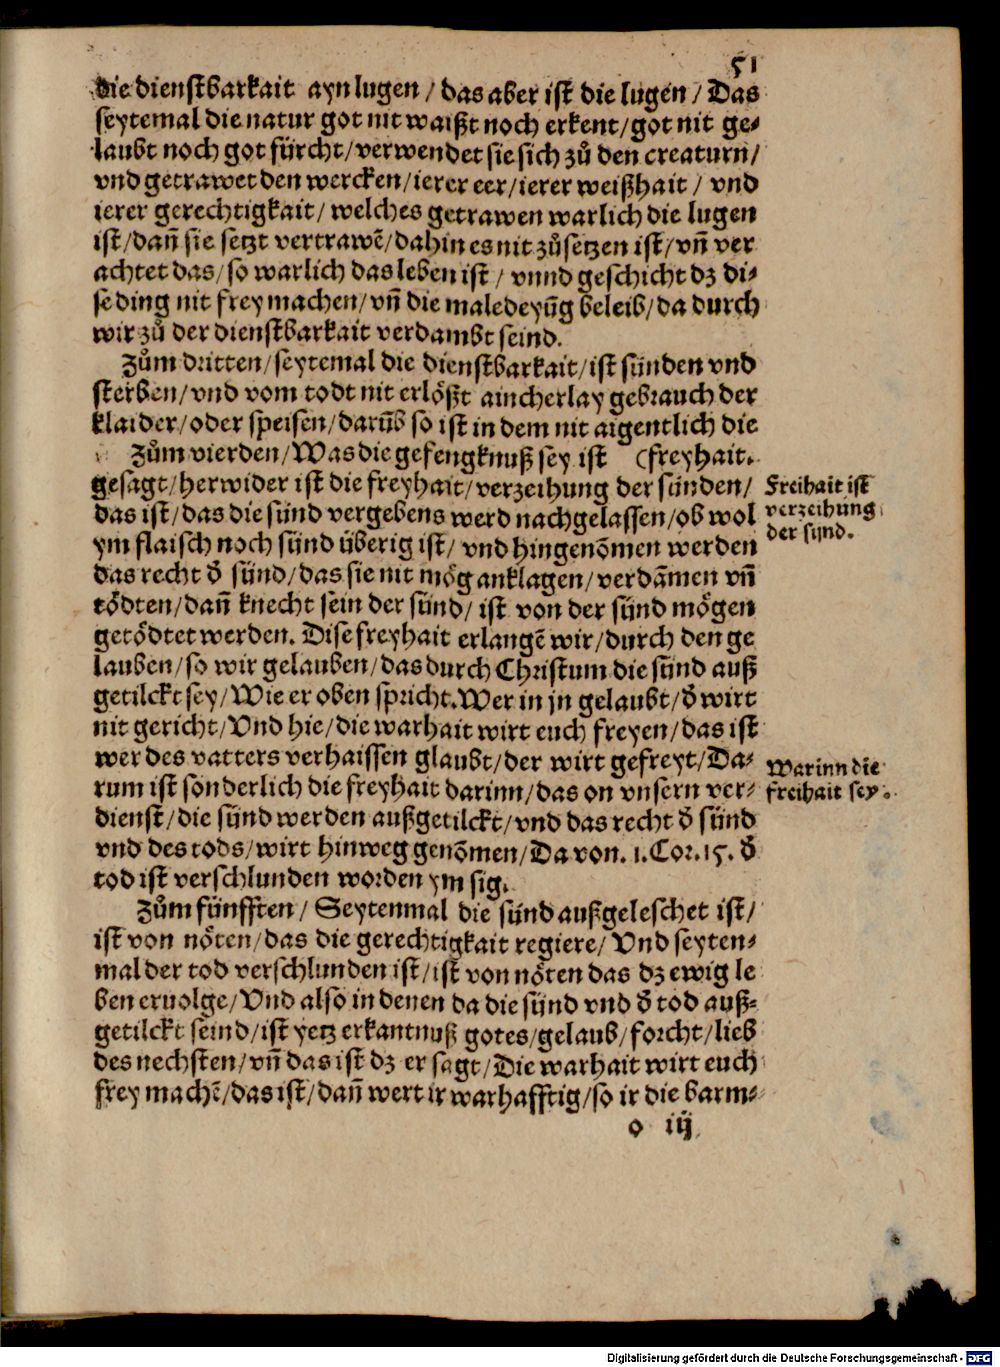 51
die dienstbarkait ayn lugen / das aber ist die lugen / Das
seytemal die natur got nit waißt noch erkent / got nit ge-
laubt noch got fürcht / verwendet sie sich zů den creaturn /
vnd getrawet den wercken / ierer eer / ierer weißhait / vnd
ierer gerechtigkait / welches getrawen warlich die lugen
ist / dañ sie setzt vertrawẽ / dahin es nit zůsetzen ist / vñ ver
achtet das / so warlich das leben ist / vnnd geschicht dz di-
se ding nit frey machen / vñ die maledeyũg beleib / da durch
wir zů der dienstbarkait verdambt seind.
Zům dritten / seytemal die dienstbarkait / ist sünden vnd
sterben / vnd vom todt nit erlößt aincherlay gebrauch der
klaider / oder speisen / darũb so ist in dem nit aigentlich die
Zům vierden / Was die gefengknuß sey ist (freyhait.
gesagt / herwider ist die freyhait / verzeihung der sünden /
das ist / das die sünd vergebens werd nachgelassen / ob wol
ym flaisch noch sünd überig ist / vnd hingenõmen werden
das recht d̕ sünd / das sie nit mög anklagen / verdãmen vñ
tödten / dañ knecht sein der sünd / ist von der sünd mögen
getödtet werden. Dise freyhait erlangẽ wir / durch den ge
lauben / so wir gelauben / das durch Christum die sünd auß
getilckt sey / Wie er oben spricht. Wer in jn gelaubt / d̕ wirt
nit gericht / Vnd hie / die warhait wirt euch freyen / das ist
wer des vatters verhaissen glaubt / der wirt gefreyt / Da-
rum ist sonderlich die freyhait darinn / das on vnsern ver-
dienst / die sünd werden außgetilckt / vnd das recht d̕ sünd
vnd des tods / wirt hinweg genõmen / Da von. 1. Cor. 15. d̕
tod ist verschlunden worden ym sig.
Zům fünfften / Seytenmal die sünd außgeleschet ist /
ist von nöten / das die gerechtigkait regiere / Vnd seyten-
mal der tod verschlunden ist / ist von nöten das dz ewig le
ben eruolge / Vnd also in denen da die sünd vnd d̕ tod auß-
getilckt seind / ist yetz erkantnuß gotes / gelaub / forcht / lieb
des nechsten / vñ das ist dz er sagt / Die warhait wirt euch
frey machẽ / das ist / dañ wert ir warhafftig / so ir die barm-
o iij
Freihait ist
verzeihung
der sünd.
Warinn die
freihait sey.
Digitalisierung gefördert durch die Deutsche Forschungsgemeinschaft - DFG